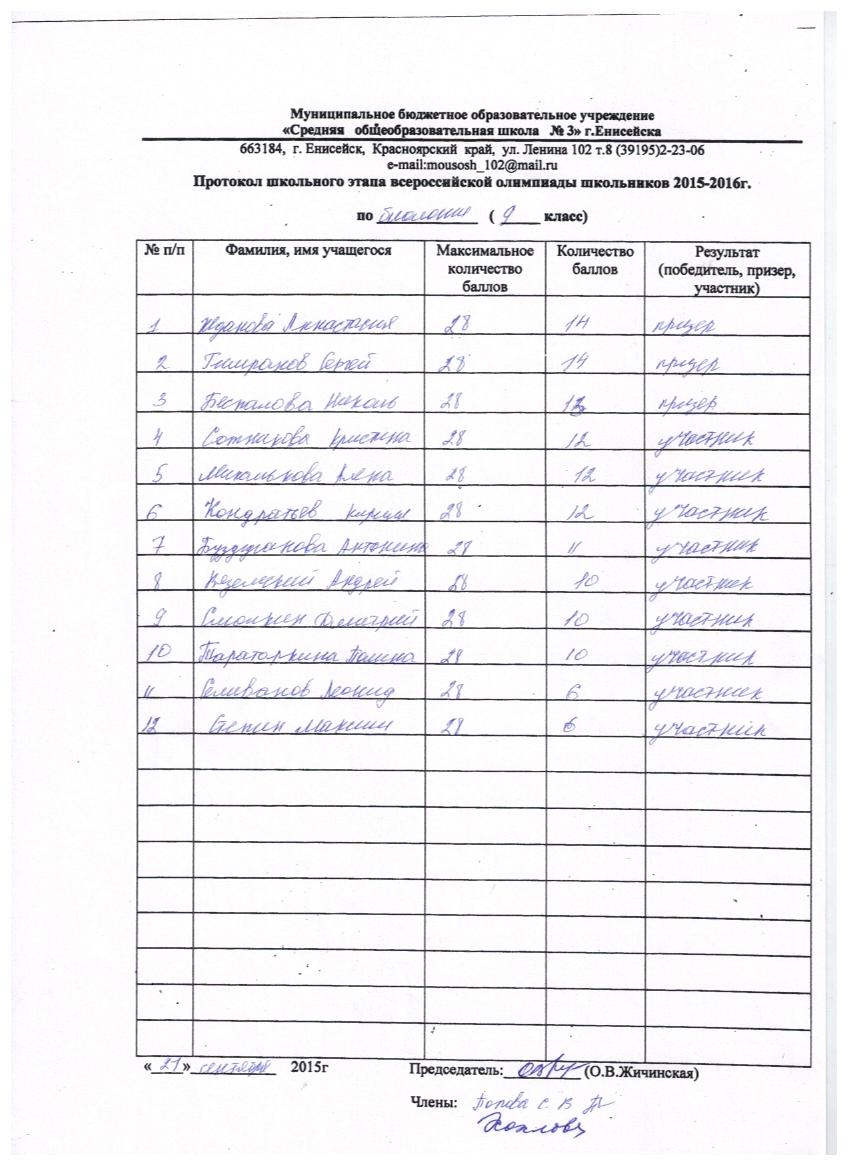 Муниципальное бюджетное образовательное учреждение
«Средняя общеобразовательная школа № 3» г.Енисейска
663184, г. Енисейск, Красноярский край, ул. Ленина 102 т.8 (39195)2-23-06
e-mail:mousosh_102@mail.ru
Протокол школьного этапа всероссийской олимпиады школьников 2015-2016г.
по биологии ( 9 класс)
№ п/п Фамилия, имя учащегося Максимальное количество баллов Количество баллов Результат (победитель, призер, участник)
1 Жданова Анастасия 28 14 призер
2 Тимранов Сергей 28 14 призер
3 Беспалова Николь 28 13 призер
4 Сотникова Кристина 28 12 участник
5 Михалькова Алена 28 12 участник
6 Кондратьев Кирилл 28 12 участник
7 Антонина 28 11 участник
8 Андрей 28 10 участник
9 Смолкин Дмитрий 28 10 участник
10 Тараторкина Полина 28 10 участник
11 Селиванов Леонид 28 6 участник
12 Степин Максим 28 6 участник
«21» сентября 2015г Председатель: (О.В.Жичинская)
Члены: Попова С. В